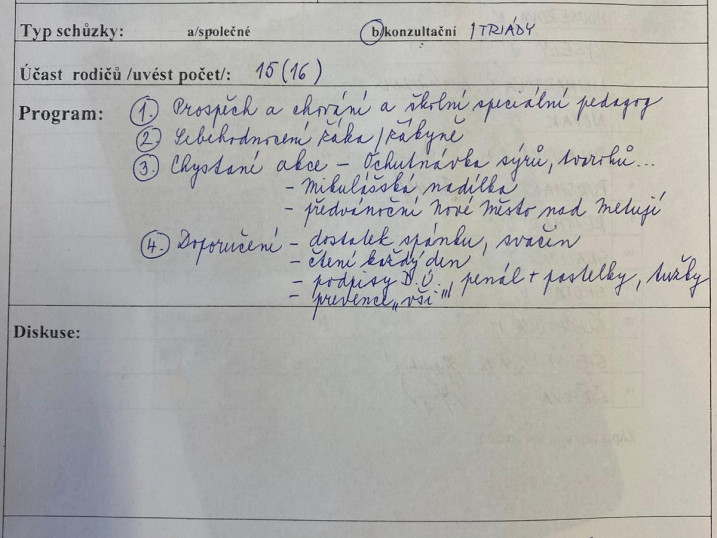 Typ schůzky: a/společné b/konzultační /TRIÁDY
Účast rodičů /uvést počet/: 15 (16)
Program: 1. Prospěch a chování a školní speciální pedagog
2. Sebehodnocení žáka / žákyně
3. Chystané akce - Ochutnávka sýrů, tvarohů...
- Mikulášská nadílka
- předvánoční Nové Město nad Metují
4. Doporučení - dostatek spánku, svačin
- čtení každý den
- podpisy D.Ú., penál + pastelky, tužky
- prevence "vši"
Diskuse: